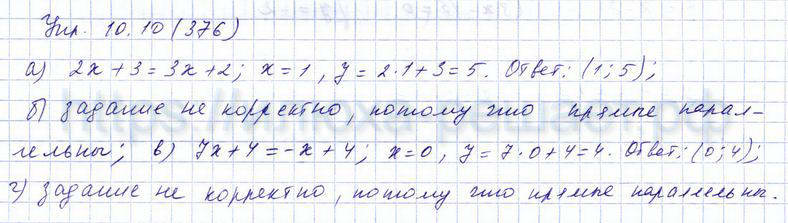 Упр. 10.10 (376)
а) 2х + 3 = 3х + 2; х = 1, у = 2·1 + 3 = 5. Ответ: (1; 5);
б) задание не корректно, потому что прямые парал-
лельны; в) 7х + 4 = -х + 4; х = 0, у = 7·0 + 4 = 4. Ответ: (0; 4);
г) задание не корректно, потому что прямые параллельны.